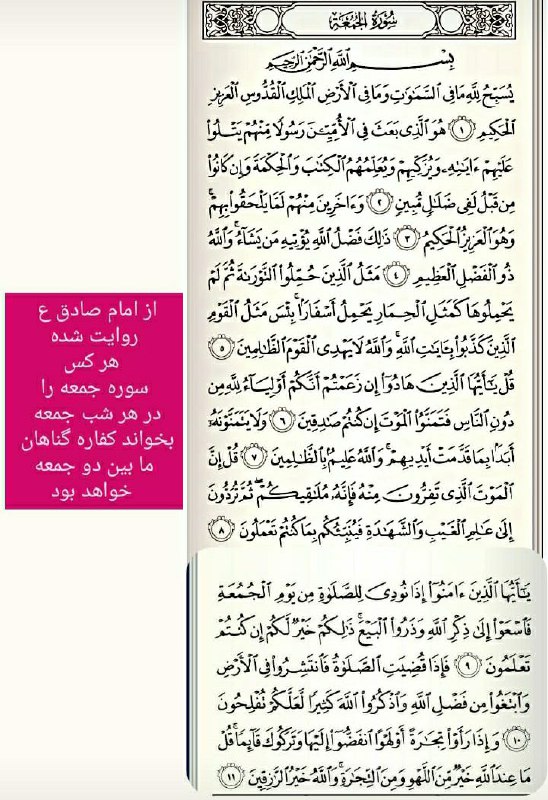 سُورَةُ الجُمُعَة
بِسْمِ اللَّهِ الرَّحْمَٰنِ الرَّحِيمِ
يُسَبِّحُ لِلَّهِ مَا فِي السَّمَٰوَٰتِ وَمَا فِي الْأَرْضِ الْمَلِكِ الْقُدُّوسِ الْعَزِيزِ
الْحَكِيمِ ۝١ هُوَ الَّذِي بَعَثَ فِي الْأُمِّيِّينَ رَسُولًا مِّنْهُمْ يَتْلُوا
عَلَيْهِمْ ءَايَٰتِهِ وَيُزَكِّيهِمْ وَيُعَلِّمُهُمُ الْكِتَٰبَ وَالْحِكْمَةَ وَإِن كَانُوا
مِن قَبْلُ لَفِي ضَلَٰلٍ مُّبِينٍ ۝٢ وَءَاخَرِينَ مِنْهُمْ لَمَّا يَلْحَقُوا بِهِمْ ۚ
وَهُوَ الْعَزِيزُ الْحَكِيمُ ۝٣ ذَٰلِكَ فَضْلُ اللَّهِ يُؤْتِيهِ مَن يَشَاءُ ۚ وَاللَّهُ
ذُو الْفَضْلِ الْعَظِيمِ ۝٤ مَثَلُ الَّذِينَ حُمِّلُوا التَّوْرَىٰةَ ثُمَّ لَمْ
يَحْمِلُوهَا كَمَثَلِ الْحِمَارِ يَحْمِلُ أَسْفَارًا ۚ بِئْسَ مَثَلُ الْقَوْمِ
الَّذِينَ كَذَّبُوا بِـَٔايَٰتِ اللَّهِ ۚ وَاللَّهُ لَا يَهْدِي الْقَوْمَ الظَّٰلِمِينَ ۝٥
قُلْ يَٰأَيُّهَا الَّذِينَ هَادُوا إِن زَعَمْتُمْ أَنَّكُمْ أَوْلِيَاءُ لِلَّهِ مِن
دُونِ النَّاسِ فَتَمَنَّوُا الْمَوْتَ إِن كُنتُمْ صَٰدِقِينَ ۝٦ وَلَا يَتَمَنَّوْنَهُ
أَبَدًا بِمَا قَدَّمَتْ أَيْدِيهِمْ ۚ وَاللَّهُ عَلِيمٌ بِالظَّٰلِمِينَ ۝٧ قُلْ إِنَّ
الْمَوْتَ الَّذِي تَفِرُّونَ مِنْهُ فَإِنَّهُ مُلَٰقِيكُمْ ۖ ثُمَّ تُرَدُّونَ
إِلَىٰ عَٰلِمِ الْغَيْبِ وَالشَّهَٰدَةِ فَيُنَبِّئُكُم بِمَا كُنتُمْ تَعْمَلُونَ ۝٨
يَٰأَيُّهَا الَّذِينَ ءَامَنُوا إِذَا نُودِيَ لِلصَّلَوٰةِ مِن يَوْمِ الْجُمُعَةِ
فَاسْعَوْا إِلَىٰ ذِكْرِ اللَّهِ وَذَرُوا الْبَيْعَ ۚ ذَٰلِكُمْ خَيْرٌ لَّكُمْ إِن كُنتُمْ
تَعْلَمُونَ ۝٩ فَإِذَا قُضِيَتِ الصَّلَوٰةُ فَانتَشِرُوا فِي الْأَرْضِ
وَابْتَغُوا مِن فَضْلِ اللَّهِ وَاذْكُرُوا اللَّهَ كَثِيرًا لَّعَلَّكُمْ تُفْلِحُونَ
۝١٠ وَإِذَا رَأَوْا تِجَٰرَةً أَوْ لَهْوًا انفَضُّوا إِلَيْهَا وَتَرَكُوكَ قَائِمًا ۚ قُلْ
مَا عِندَ اللَّهِ خَيْرٌ مِّنَ اللَّهْوِ وَمِنَ التِّجَٰرَةِ ۚ وَاللَّهُ خَيْرُ الرَّٰزِقِينَ ۝١١
از امام صادق ع
روایت شده
هر کس
سوره جمعه را
در هر شب جمعه
بخواند کفاره گناهان
ما بین دو جمعه
خواهد بود